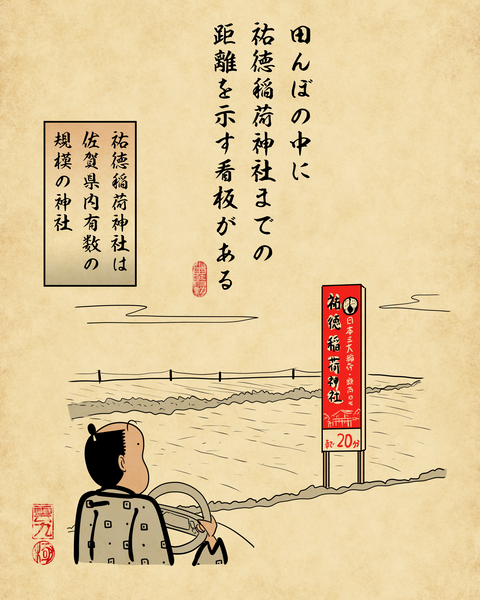 田んぼの中に
祐徳稲荷神社までの
距離を示す看板がある
祐徳稲荷神社は
佐賀県内有数の
規模の神社
祐徳稲荷神社
日本三大稲荷
20分